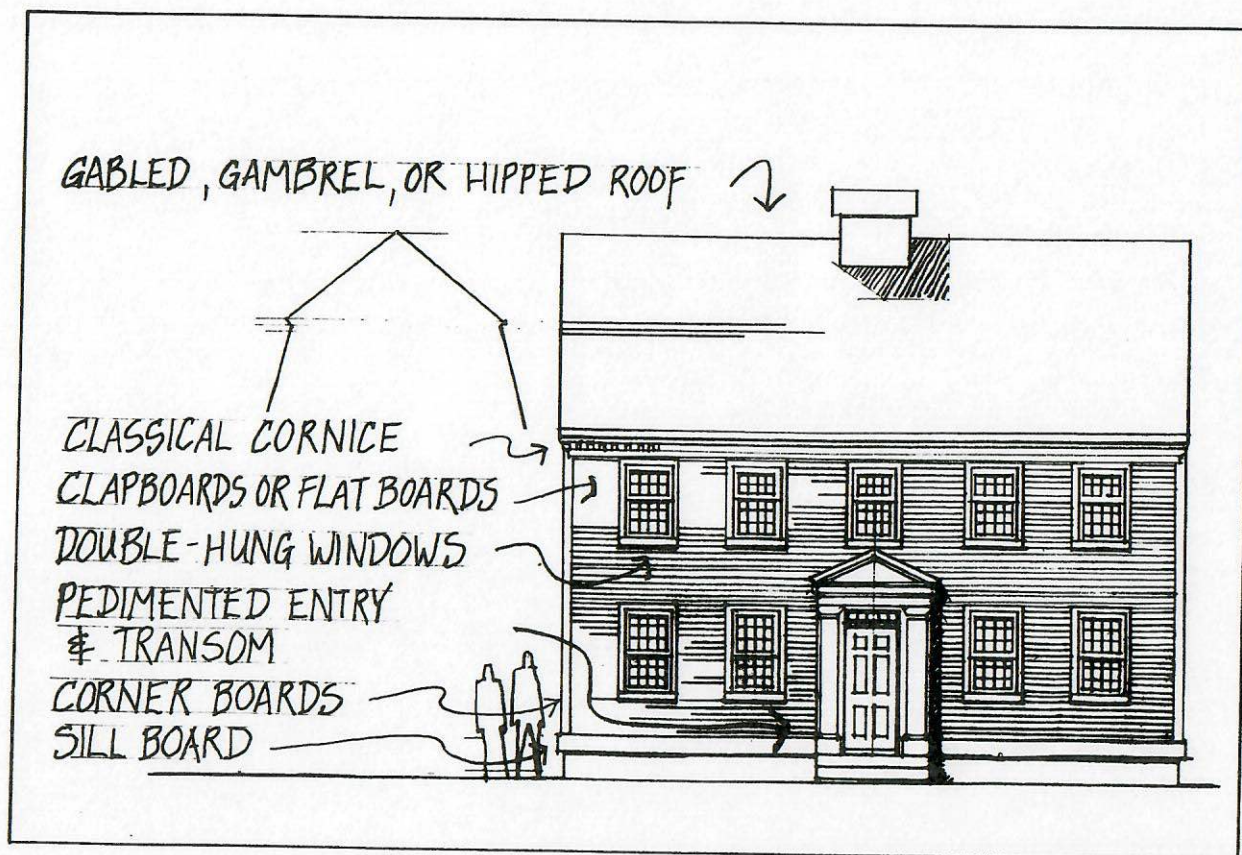 GABLED, GAMBREL, OR HIPPED ROOF
CLASSICAL CORNICE
CLAPBOARDS OR FLAT BOARDS
DOUBLE-HUNG WINDOWS
PEDIMENTED ENTRY
& TRANSOM
CORNER BOARDS
SILL BOARD